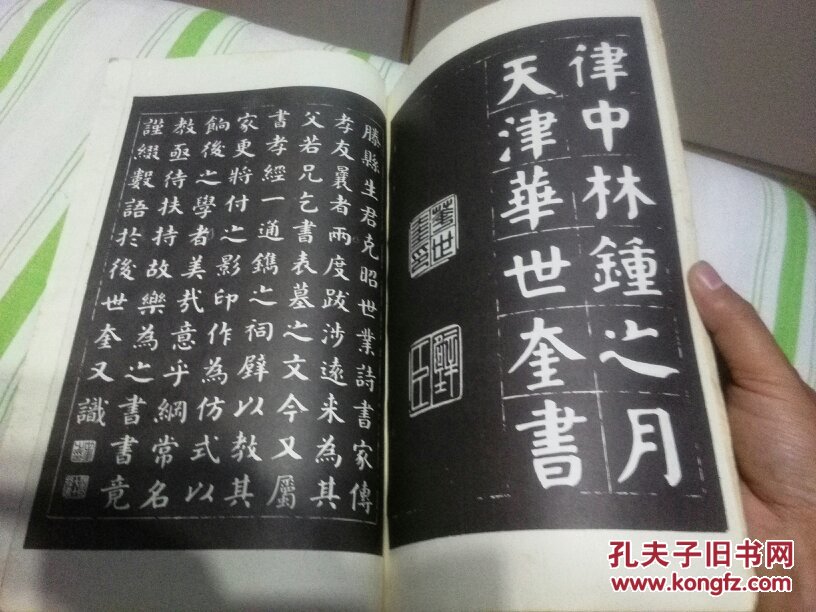 律中林鍾之月
天津華世奎書
滕縣生君克昭世業詩書家傳
孝友曩者兩度跋涉遠来為其
父若兄乞書表墓之文今又屬
書孝經一通鐫之祠壁以教其
家更將付之影印作為仿式以
餉後之學者美哉意乎綱常名
教亟待扶持故樂為之書書竟
謹綴數語於後世奎又識
孔夫子旧书网
www.kongfz.com